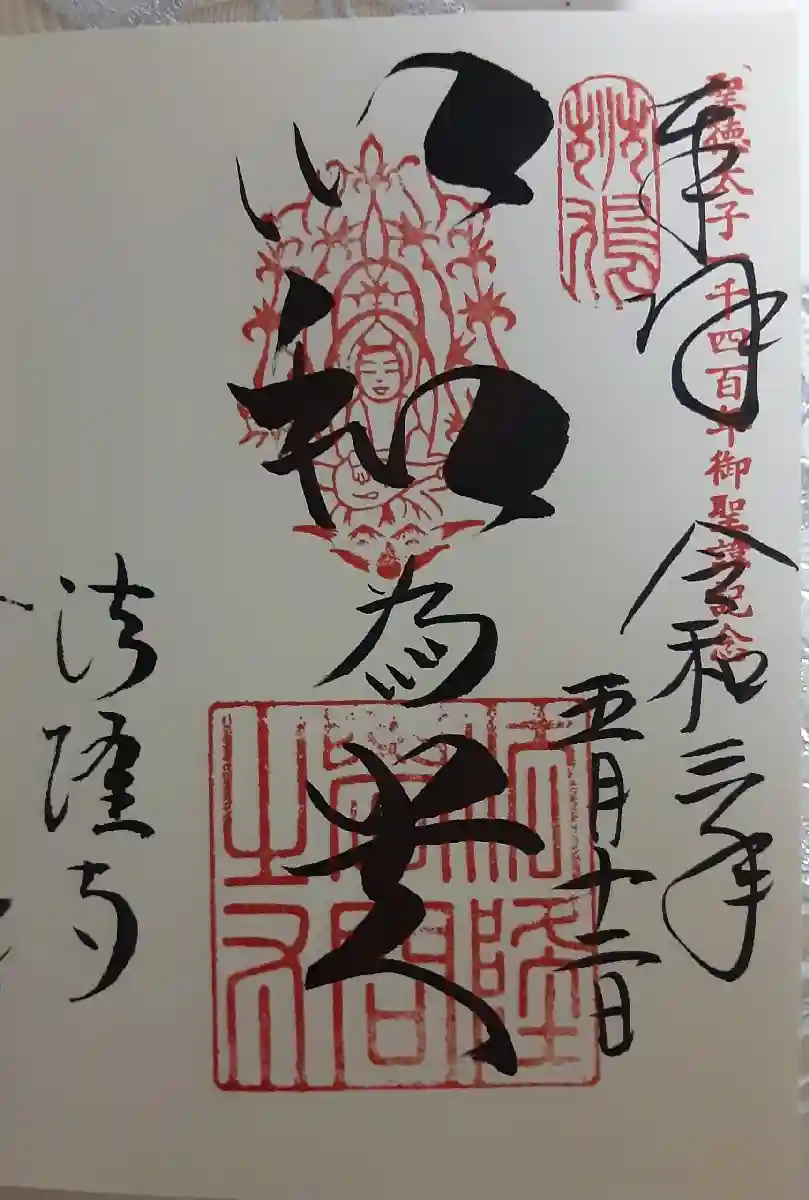 聖徳太子一千四百年御聖諱記念
奉拝
令和三年
五月十二日
以和為貴
法隆寺